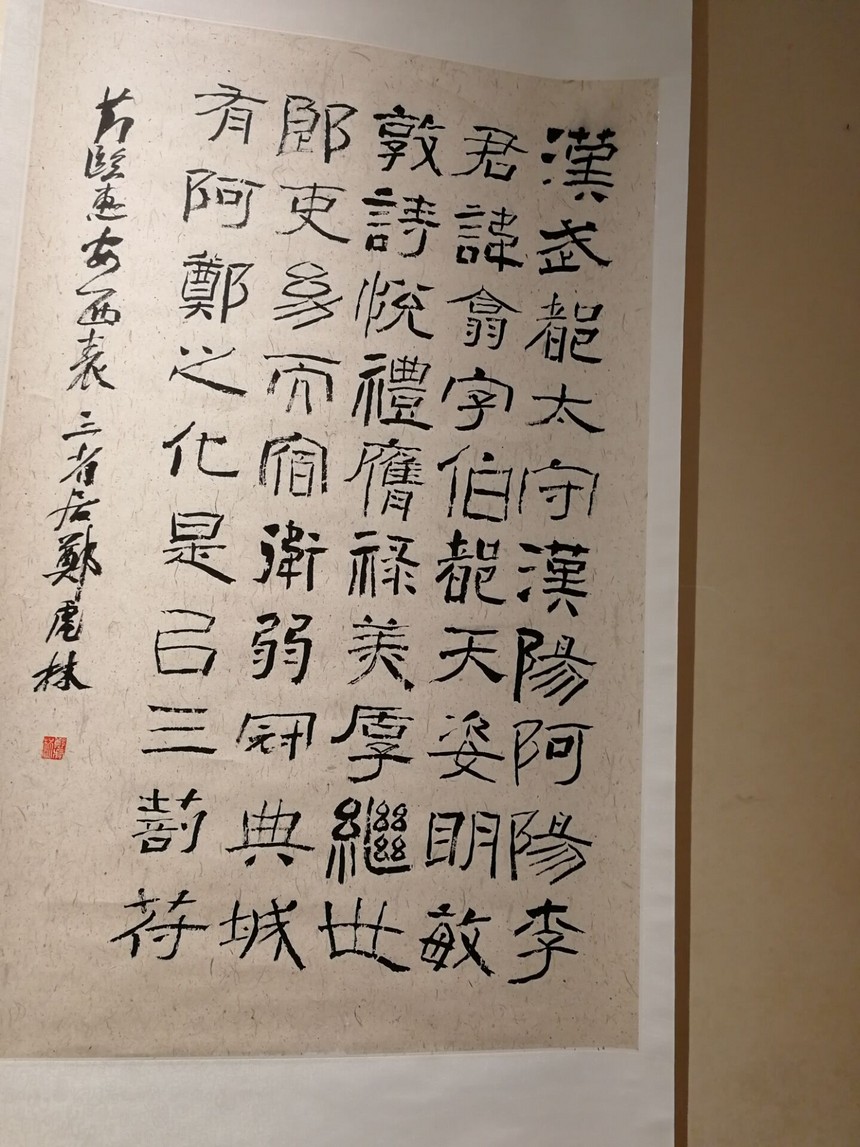 漢武都太守漢陽阿陽李
君諱翕字伯都天姿明敏
敦詩悅禮膺祿美厚繼世
郎吏幼而宿衛弱冠典城
有阿鄭之化是以三剖符
三省居鄭虎林